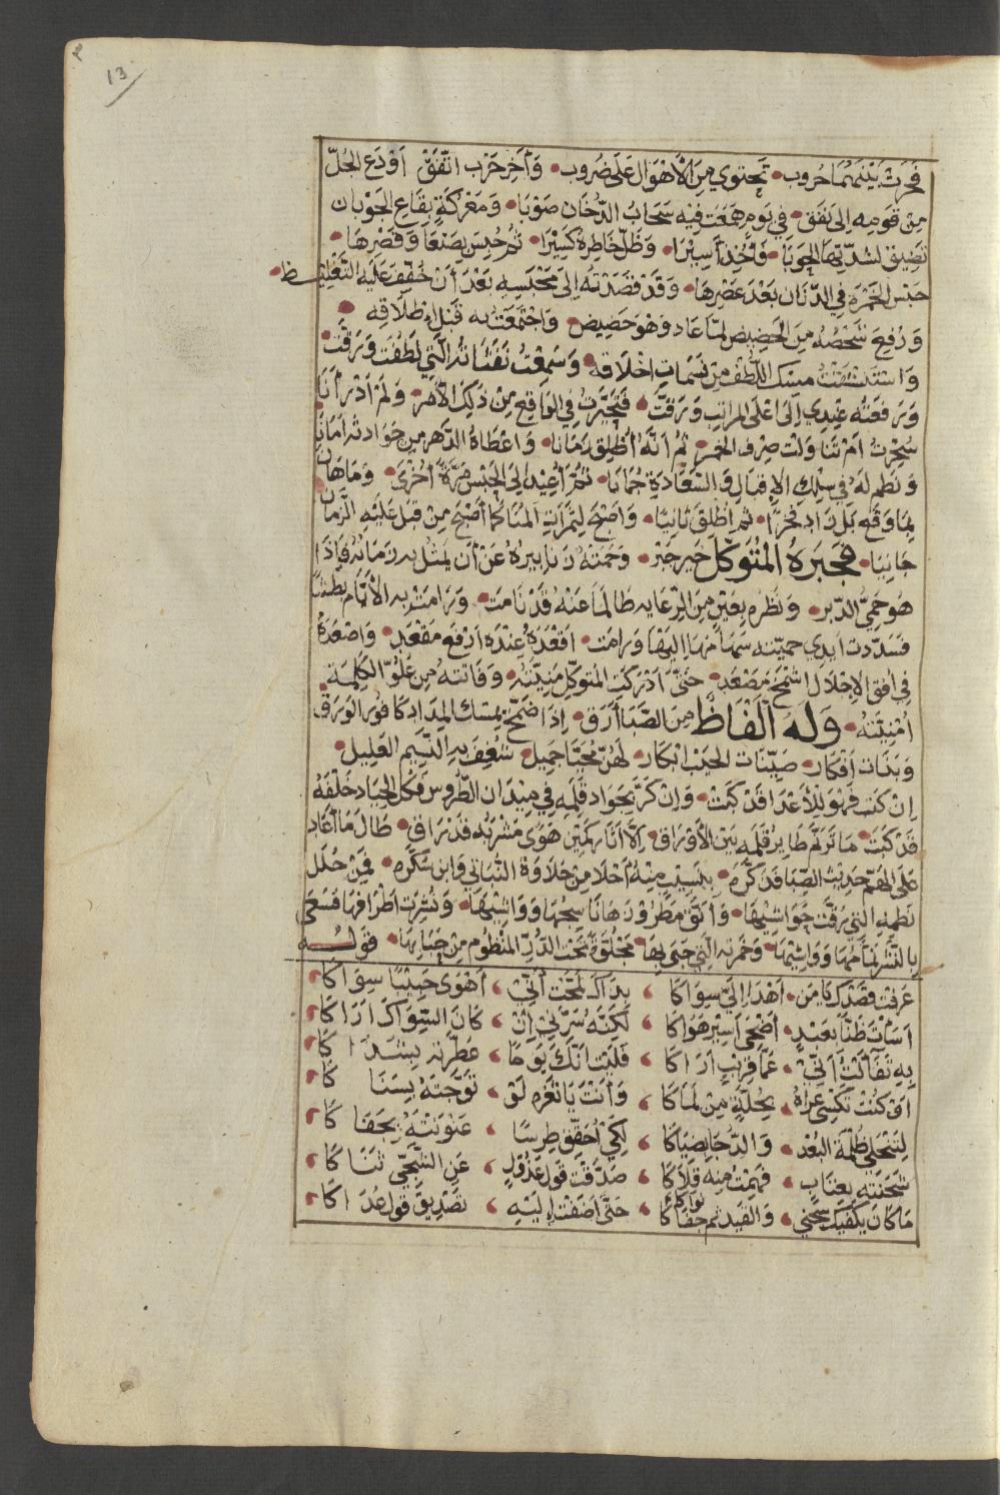 13
فجرت بينهما حروب • تحتوي من الأهوال على ضروب • وآخر حرب اتفق أودع الجل
من قومه الى نفق • في يوم همعت فيه سحاب الدخان صوبا • ومعركة بقاع الجوبان
تضيق لشدتها الجوبا • وأخذ أسيرا • وظل خاطره كسيرا • ثم حبس بصنعا وقصرها •
حبس الخمرة في الدنان بعد عصرها • وقد قصدته الى محبسه بعد أن خفف عليه التغليظ •
ورفع شخصه من الحضيض لما عاد وهو حضيض • واجتمعت به قبل إطلاقه •
واستنشقت مسك اللطف من نسمات اخلاقه • وسمعت نفثاته التي لطفت ورقت •
ورفعته عندي إلى أعلى المراتب ورقت • فتحيرت في الواقع من ذلك الأمر • ولم أدر أنا
سحرت أم تناولت صرف الخمر • ثم انه أطلق زمانا • واعطاه الدهر من حوادثه أمانا •
ونظم له في سلك الإقبال والسعادة جمانا • ثم أعيد إلى الحبس مرة أخرى • وماهان
بما وقع بل زاد فخرا • ثم اطلق ثانيا • واضحى لثمرات المنا كما أضحى من قبل عليه الزمان
جانيا • فجبره المتوكل خير جبر • وحمته دنانيره عن أن يمثل به زمانه فإذا
هو حمي الدبر • ونظره بعين من الرعايه طالما عنه قد نامت • ورامت به الأيام بطشا
فسددت ايدي حميته سهامها اليها ورامت • اقعده عنده أرفع مقعد • واصعده
في افق الإجلال اشمخ مصعد • حتى أدركت المتوكل منيته • وفاتته من علو الكلمة
أمنيته • وله ألفاظ من الصبا أرق • إذا ضمخ بمسك المداد كافور الورق
وبنات افكار • صينات الحجب ابكار • لهن محيا جميل • شغف به النسيم العليل •
إن كتب فهو للأعدا قد كبت • وإن كر بجواد قلمه في ميدان الطروس فكل الجياد خلفه
قد كبت • ما ترنم طاير قلمه بين الأوراق • إلا أنار لهمتين هوى مشربه قد راق • طال ما أعاد
على الهم حديث الصبا قد كره • بنسيب منه أحلا من حلاوة النباتي وابن سكره • فمن حلل
نظمه التي رقت حواشيها • وأتق مطرودها ناسجها وواشيها • ونشرت اطرافها فسعى
بالنشر نمامها وواشيها • وخمرته التي حبى بها • مجلوة تحت الدر المنظوم من حبابها • قوله
عرفت قصدك يا من • أهدا إلي سواكا ، بذاك لمحت أني ، أهوى حبيبا سواكا
أسأت ظنا بعبد • أضحى أسير هواكا ، لكنه سرني أن ، كان السواك أراكا
به تفألت أني • عما قريب أراكا ، فليت انك يوما ، عطرته بشذاكا
او كنت تكسي عراه • بحلة من لماكا ، وأنت يا ثغره لو ، توجته بسناكا
لتنجلي ظلمة البعد • والدجا بضياكا ، لكي أحقق طرسا ، عنونته بجفاكا
شحنته بعتاب • فهمت منه قلاكا ، صدقت قول عذول ، عن الشجي ثناكا
ما كان يكفيك سجني • والقيد ثم جفاكا ، حتى أضفت إليه ، تصديق قول عداكا
نواكا